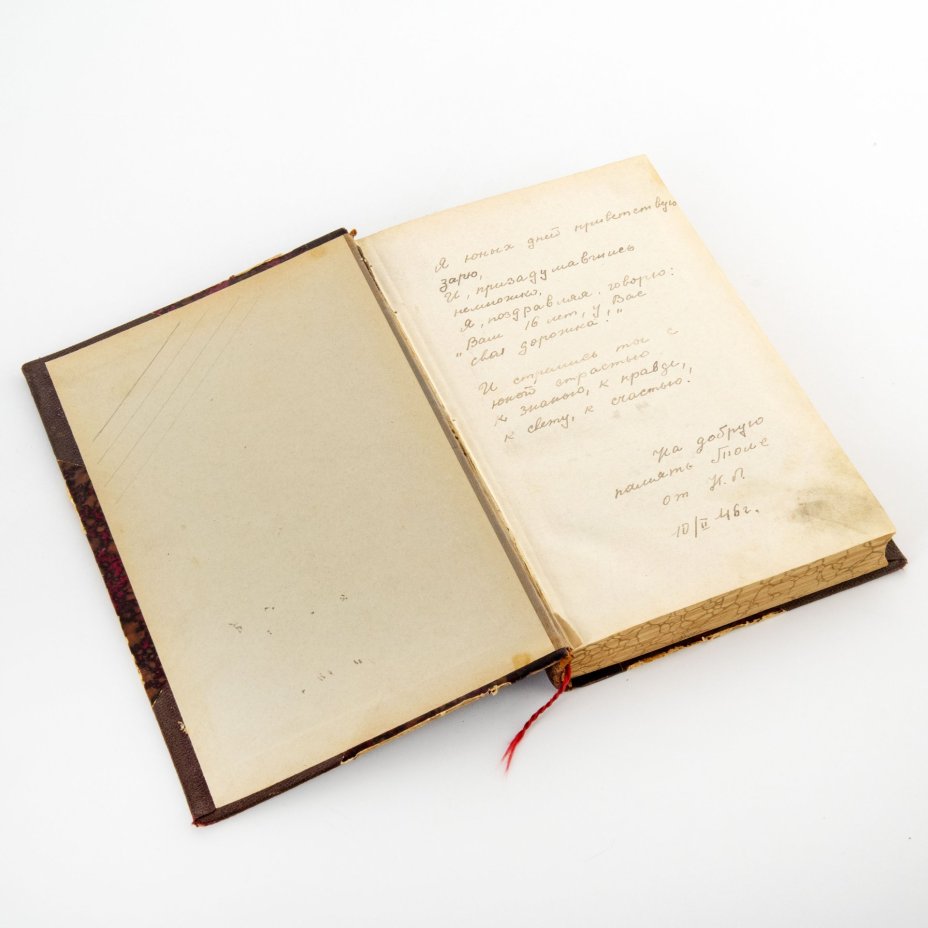 Я юных дней приветствую
зарю,
И, призадумавшись
немножко,
Я, поздравляя, говорю:
"Вам 16 лет, у Вас
своя дорожка!"
И стремись ты с
юной страстью
к знанью, к правде,
к свету, к счастью.
На добрую
память Толе
от Н. П.
10/II 46г.